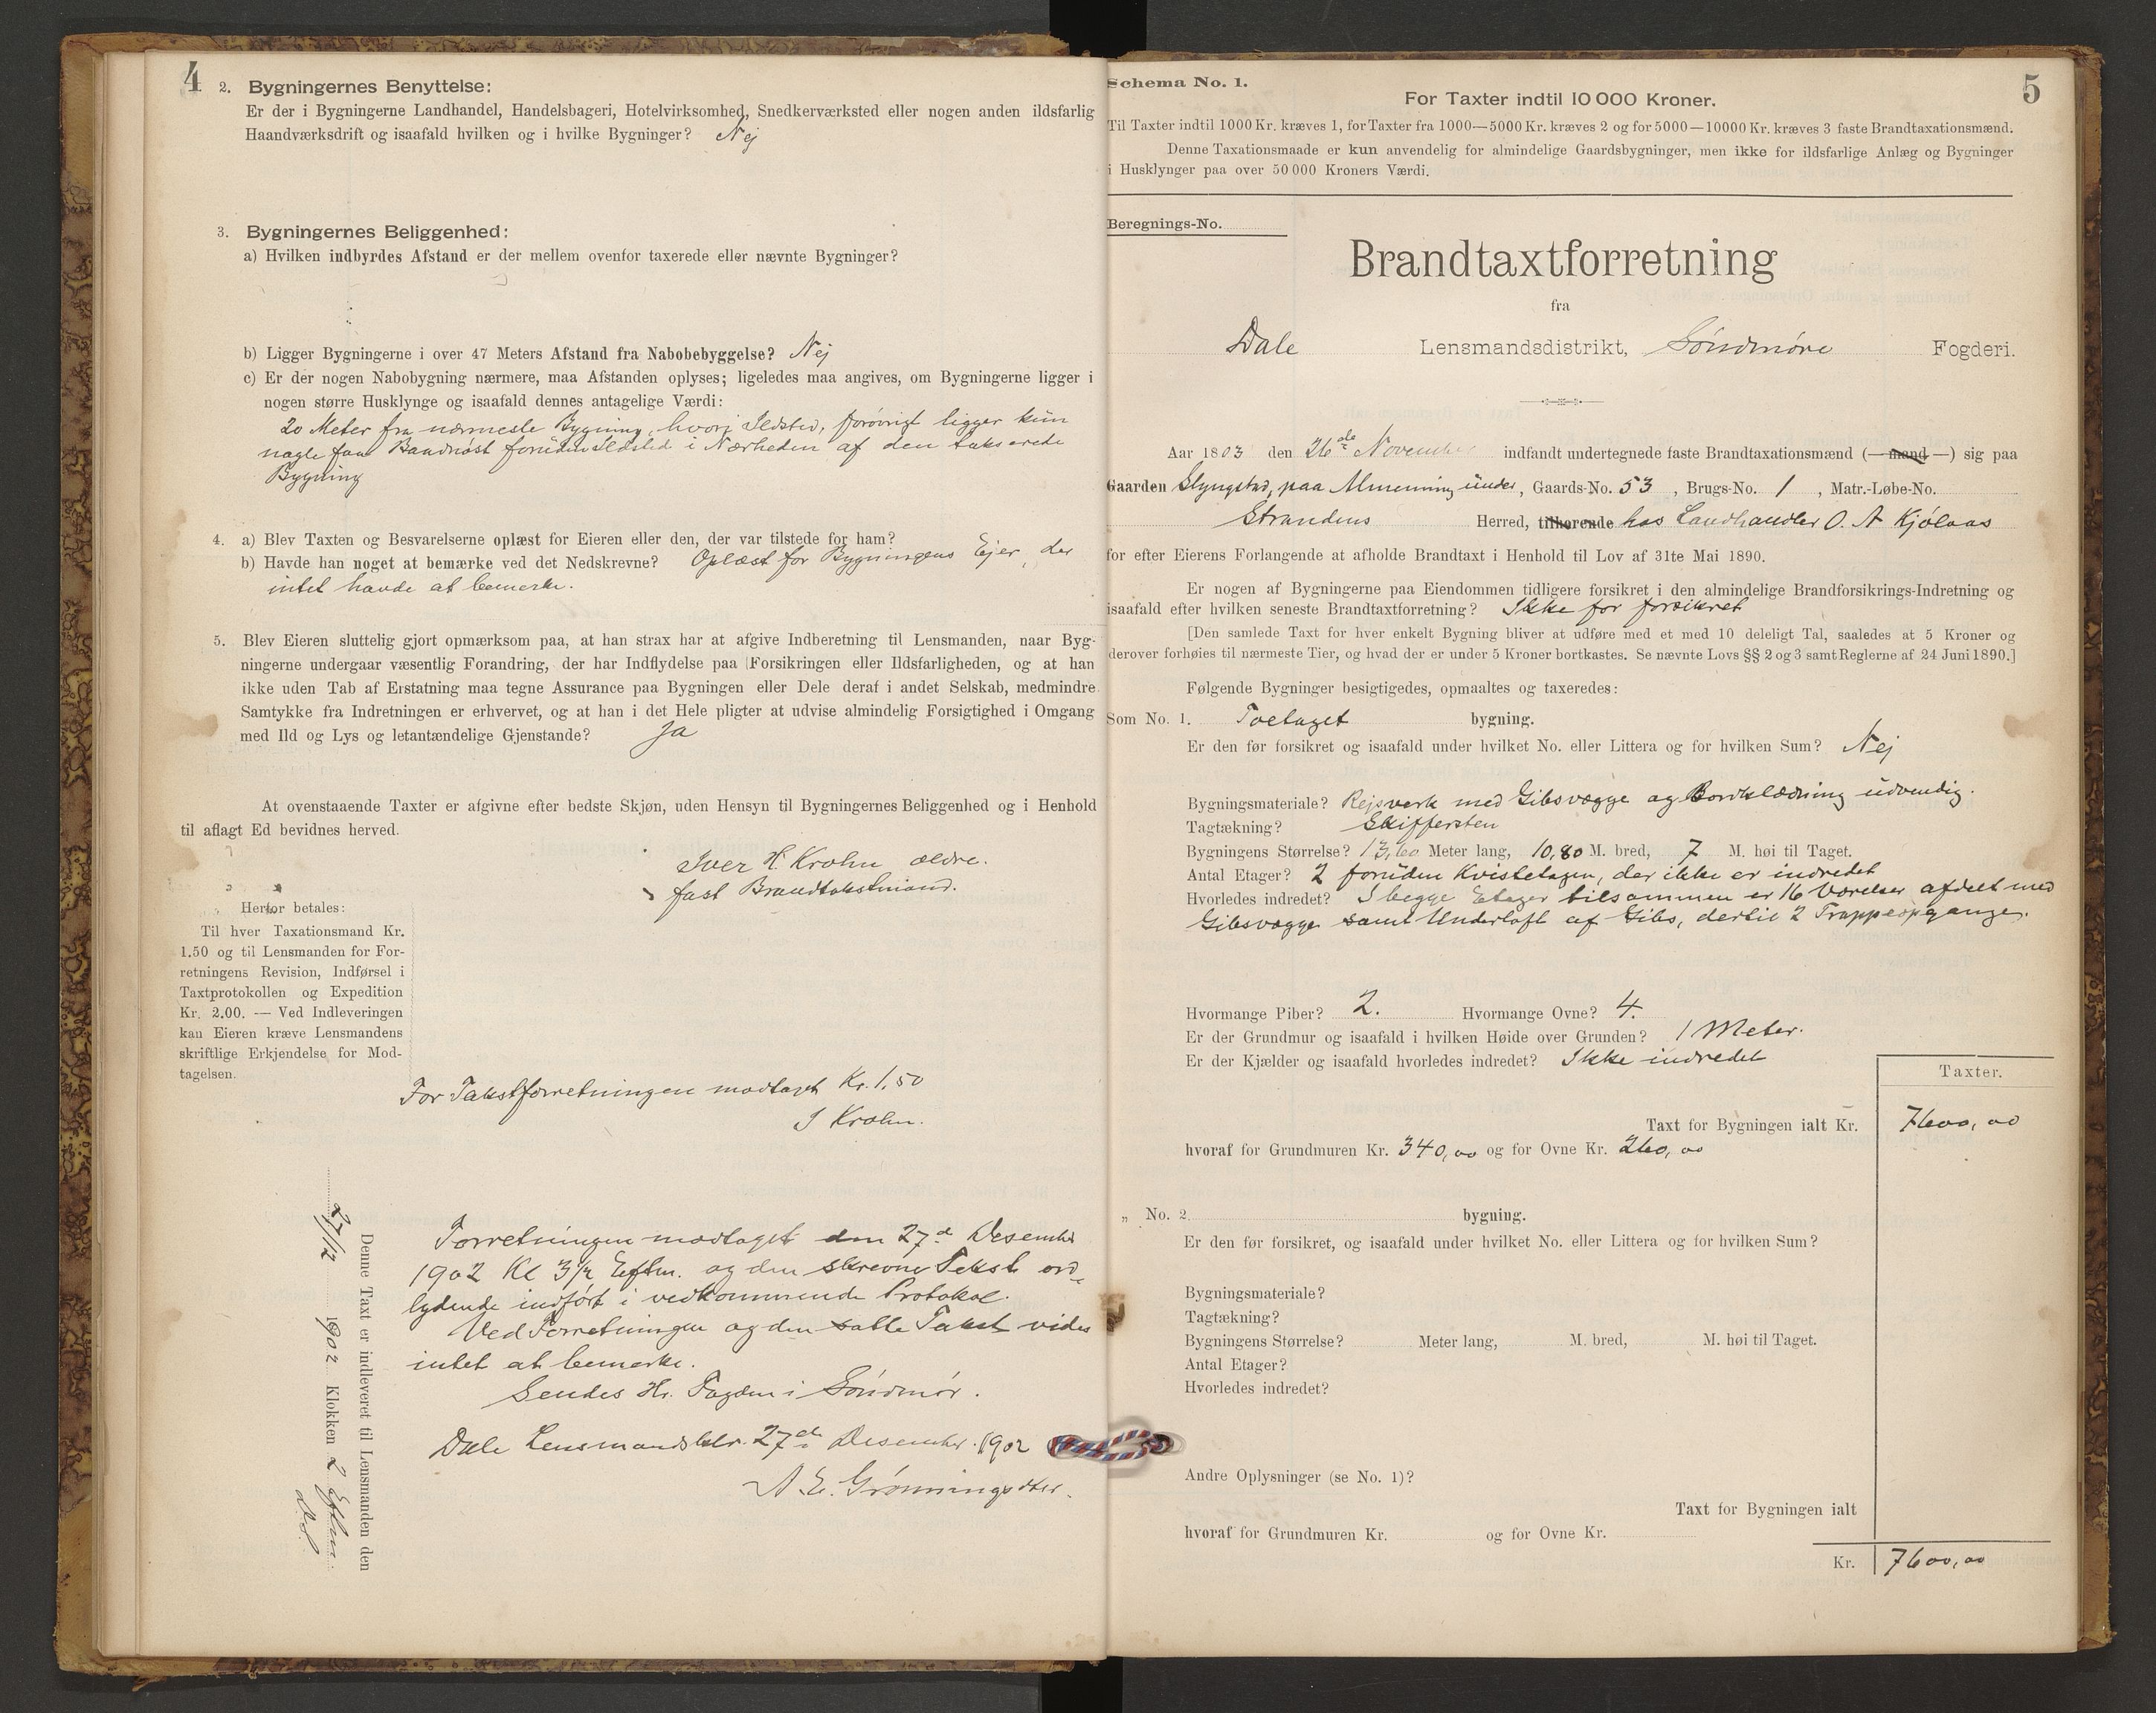 4
2. Bygningernes Benyttelse:
Er der i Bygningerne Landhandel, Handelsbageri, Hotelvirksomhed, Snedkerværksted eller nogen anden ildsfarlig
Haandværksdrift og isaafald hvilken og i hvilke Bygninger? Nej
3. Bygningernes Beliggenhed:
a) Hvilken indbyrdes Afstand er der mellem ovenfor taxerede eller nævnte Bygninger?
b) Ligger Bygningerne i over 47 Meters Afstand fra Nabobebyggelse? Nej
c) Er der nogen Nabobygning nærmere, maa Afstanden oplyses; ligeledes maa angives, om Bygningerne ligger i
nogen større Husklynge og isaafald dennes antagelige Værdi:
20 Meter fra nærmeste Bygning, hvori Ildsted, forøvrigt ligger kun
nogle faa Baadnøst foruden Ildsted i Nærheden af den takserede
Bygning
4. a) Blev Taxten og Besvarelserne oplæst for Eieren eller den, der var tilstede for ham?
b) Havde han noget at bemærke ved det Nedskrevne? Oplæst for Bygningens Ejer, der
intet havde at bemerke.
5. Blev Eieren sluttelig gjort opmærksom paa, at han strax har at afgive Indberetning til Lensmanden, naar Byg-
ningerne undergaar væsentlig Forandring, der har Indflydelse paa Forsikringen eller Ildsfarligheden, og at han
ikke uden Tab af Erstatning maa tegne Assurance paa Bygningen eller Dele deraf i andet Selskab, medmindre
Samtykke fra Indretningen er erhvervet, og at han i det Hele pligter at udvise almindelig Forsigtighed i Omgang
med Ild og Lys og letantændelige Gjenstande? Ja
At ovenstaaende Taxter er afgivne efter bedste Skjøn, uden Hensyn til Bygningernes Beliggenhed og i Henhold
til aflagt Ed bevidnes herved.
Iver H. Krohn ældre.
fast Brandtakstmand.
Herfor betales:
Til hver Taxationsmand Kr.
1.50 og til Lensmanden for For-
retningens Revision, Indførsel i
Taxtprotokollen og Expedition
Kr. 2.00. — Ved Indleveringen
kan Eieren kræve Lensmandens
skriftlige Erkjendelse for Mod-
tagelsen.
For Takstforretningen modtaget Kr. 1,50
I Krohn.
Denne Taxt er indleveret til Lensmanden den
27/12 1902 Klokken 2 Eftm.
Forretningen modtaget den 27de Desember
1902 Kl 3 1/2 Eftm. og den skrevne Tekst ord-
lydende indført i vedkommende Protokol.
Ved Forretningen og den satte Takst vides
intet at bemerke.
Sendes Hr. Fogden i Söndmör.
Dale Lensmandsbstr. 27de Desember 1902
A. E. Grönningsæter.
5
Schema No. 1.
For Taxter indtil 10 000 Kroner.
Til Taxter indtil 1000 Kr. kræves 1, for Taxter fra 1000—5000 Kr. kræves 2 og for 5000—10000 Kr. kræves 3 faste Brandtaxationsmænd.
Denne Taxationsmaade er kun anvendelig for almindelige Gaardsbygninger, men ikke for ildsfarlige Anlæg og Bygninger
i Husklynger paa over 50 000 Kroners Værdi.
Beregnings-No.
Brandtaxtforretning
fra
Dale Lensmandsdistrikt, Söndmöre Fogderi.
Aar 1803 den 26de November indfandt undertegnede faste Brandtaxationsmænd (—mand—) sig paa
Gaarden Slyngstad, paa Almenning under, Gaards-No. 53, Brugs-No. 1, Matr.-Løbe-No.
Strandens Herred, tilhørende hos Landhandler O. A Kjölaas
for efter Eierens Forlangende at afholde Brandtaxt i Henhold til Lov af 31te Mai 1890.
Er nogen af Bygningerne paa Eiendommen tidligere forsikret i den almindelige Brandforsikrings-Indretning og
isaafald efter hvilken seneste Brandtaxtforretning? Ikke før forsikret
[Den samlede Taxt for hver enkelt Bygning bliver at udføre med et med 10 deleligt Tal, saaledes at 5 Kroner og
derover forhøies til nærmeste Tier, og hvad der er under 5 Kroner bortkastes. Se nævnte Lovs §§ 2 og 3 samt Reglerne af 24 Juni 1890.]
Følgende Bygninger besigtigedes, opmaaltes og taxeredes:
Som No. 1. Toetaget bygning.
Er den før forsikret og isaafald under hvilket No. eller Littera og for hvilken Sum? Nej
Bygningsmateriale? Rejsverk med Gibsvægge og Bordklædning udvendig.
Tagtækning? Skiffersten
Bygningens Størrelse? 13,60 Meter lang, 10,80 M. bred, 7 M. høi til Taget.
Antal Etager? 2 foruden Kvistetagen, der ikke er indredet
Hvorledes indredet? I begge Etager tilsammen er 16 Værelser afdelt med
Gibsvægge samt Underloft af Gibs, dertil 2 Trappeopgange.
Hvormange Piber? 2. Hvormange Ovne? 4.
Er der Grundmur og isaafald i hvilken Høide over Grunden? 1 Meter.
Er der Kjælder og isaafald hvorledes indredet? Ikke indredet
Taxter.
Taxt for Bygningen ialt Kr. 7600,00
hvoraf for Grundmuren Kr. 340,00 og for Ovne Kr. 260,00
„ No. 2 bygning.
Er den før forsikret, og isaafald under hvilket No. eller Littera og for hvilken Sum?
Bygningsmateriale?
Tagtækning?
Bygningens Størrelse? Meter lang, M. bred, M. høi til Taget.
Antal Etager?
Hvorledes indredet?
Andre Oplysninger (se No. 1)?
Taxt for Bygningen ialt
hvoraf for Grundmuren Kr. og for Ovne Kr.
Kr. 7600,00